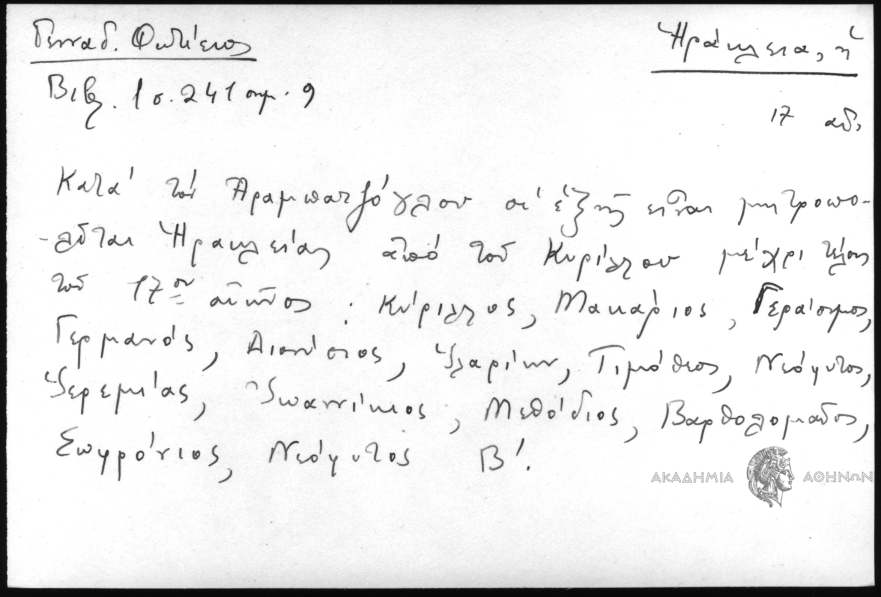 Γενναδ. Φωτιειος
Ἡράκλεια, ἡ
Βιβ. 1 σ. 241 σημ. 9
17 αἰ.
Κατά τόν Ἀραμπατζόγλου οἱ ἑξῆς εἶναι μητροπο-
-λῖται Ἡρακλείας ἀπό τοῦ Κυρίλλου μέχρι τέλος
τοῦ 17ου αἰῶνος : Κύριλλος, Μακάριος, Γεράσιμος,
Γερμανός, Διονύσιος, Ἱλαρίων, Τιμόθεος, Νεόφυτος,
Ἱερεμίας, Ἰωαννίκιος, Μεθόδιος, Βαρθολομαῖος,
Σωφρόνιος, Νεόφυτος Β΄.
ΑΚΑΔΗΜΙΑ ΑΘΗΝΩΝ